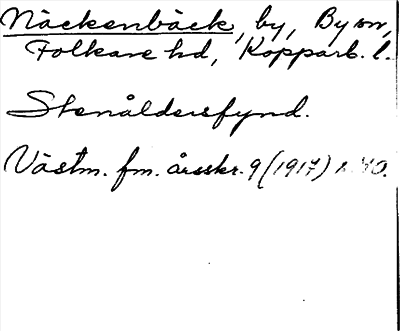 Näckenbäck, by, By sn,
Folkare hd, Kopparb. l.
Stenåldersfynd.
Västm. fm. årsskr. 9 (1917) s. 40.